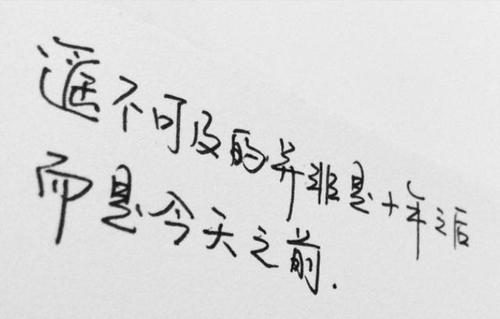 遥不可及的并非是十年之后
而是今天之前.